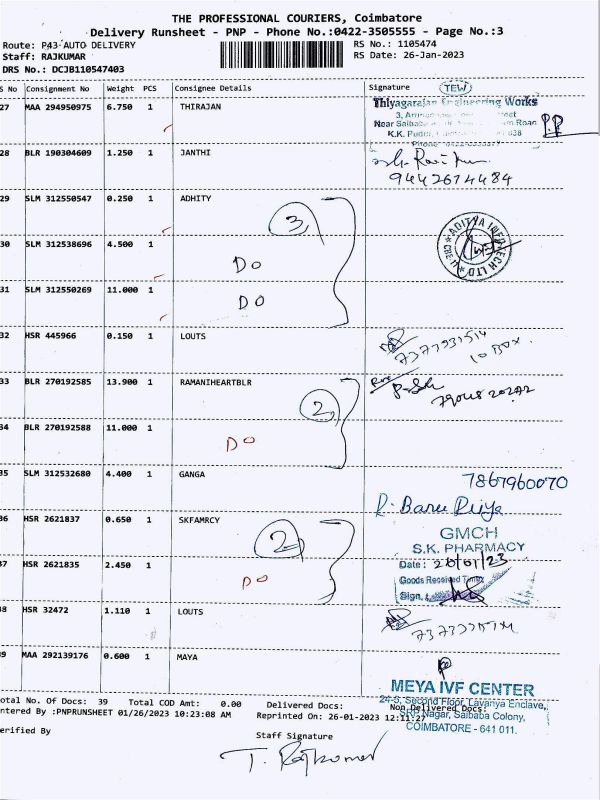 THE PROFESSIONAL COURIERS, Coimbatore
Delivery Runsheet - PNP - Phone No.:0422-3505555 - Page No.:3
Route: P43-AUTO DELIVERY
RS No.: 1105474
Staff: RAJKUMAR
RS Date: 26-Jan-2023
DRS No.: DCJB110547403
S No Consignment No Weight PCS Consignee Details Signature
27 MAA 294950975 6.750 1 THIRAJAN
TEW
Thiyagarajan Engineering Works
Near Saibaba
K.K. Pudur
P.P
28 BLR 190304609 1.250 1 JANTHI
9442674484
29 SLM 312550547 0.250 1 ADHITY
3
ADITYA INFOTECH LTD
30 SLM 312538696 4.500 1
DO
31 SLM 312550269 11.000 1
DO
32 HSR 445966 0.150 1 LOUTS
10 Box.
33 BLR 270192585 13.900 1 RAMANIHEARTBLR
2
34 BLR 270192588 11.000 1
DO
35 SLM 312532680 4.400 1 GANGA
7867960070
36 HSR 2621837 0.650 1 SKFAMRCY
2
GMCH
S.K. PHARMACY
37 HSR 2621835 2.450 1
DO
Date : 26/01/23
Goods Received Time
Sign.
38 HSR 32472 1.110 1 LOUTS
39 MAA 292139176 0.600 1 MAYA
MEYA IVF CENTER
24-S, Second Floor, Lavanya Enclave,
SRP Nagar, Saibaba Colony,
COIMBATORE - 641 011.
otal No. Of Docs: 39 Total COD Amt: 0.00 Delivered Docs: Non Delivered Docs:
ntered By :PNPRUNSHEET 01/26/2023 10:23:08 AM Reprinted On: 26-01-2023 12:11:27
erified By
Staff Signature
T. Rajkumar